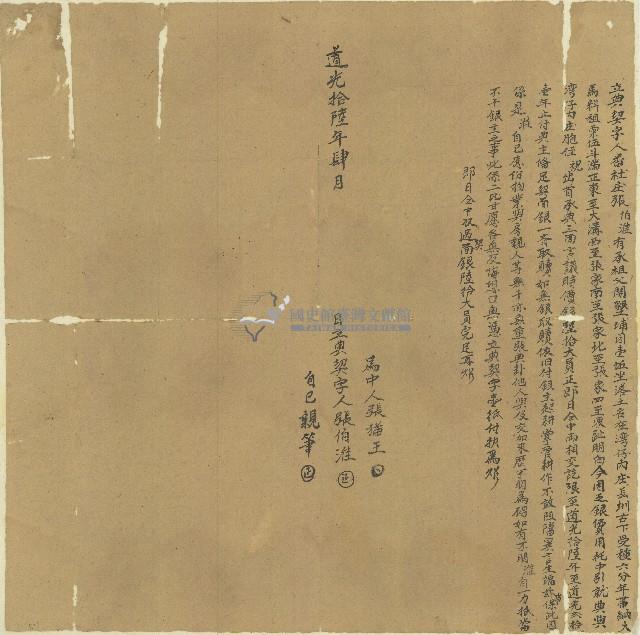 立典契字人番社庄張伯淮有承祖父開墾埔園壹坵坐落土名在湾仔內庄長圳古下受種六分年帶納大
馬料租粟伍斗滿正東至大溝西至張家南至張家北至張家四至界趾明白今因乏銀費用託中引就典與
湾仔內庄胞侄 出首承典三面言議時價銀 拾大員正即日仝中兩相交訖限至道光拾陸年至道光 拾
壹年止付典主俻足契面銀一齊取贖如無銀取贖依旧付銀主起耕掌管耕作不敢阻擋異言生端 保此園
係是淮自己應份物業與房親人等無干亦無重張典卦他人與及交加來歷不明為碍如有不明淮自一力抵當
不干銀主之事此係二比甘愿各無反悔恐口無憑立典契字壹紙付执為炤
即日仝中収過契面銀陸拾大員完足再炤
為中人張猫王
日立典契字人張伯淮
自己親筆
道光拾陸年肆月
國史館臺灣文獻館
TAIWAN HISTORICA